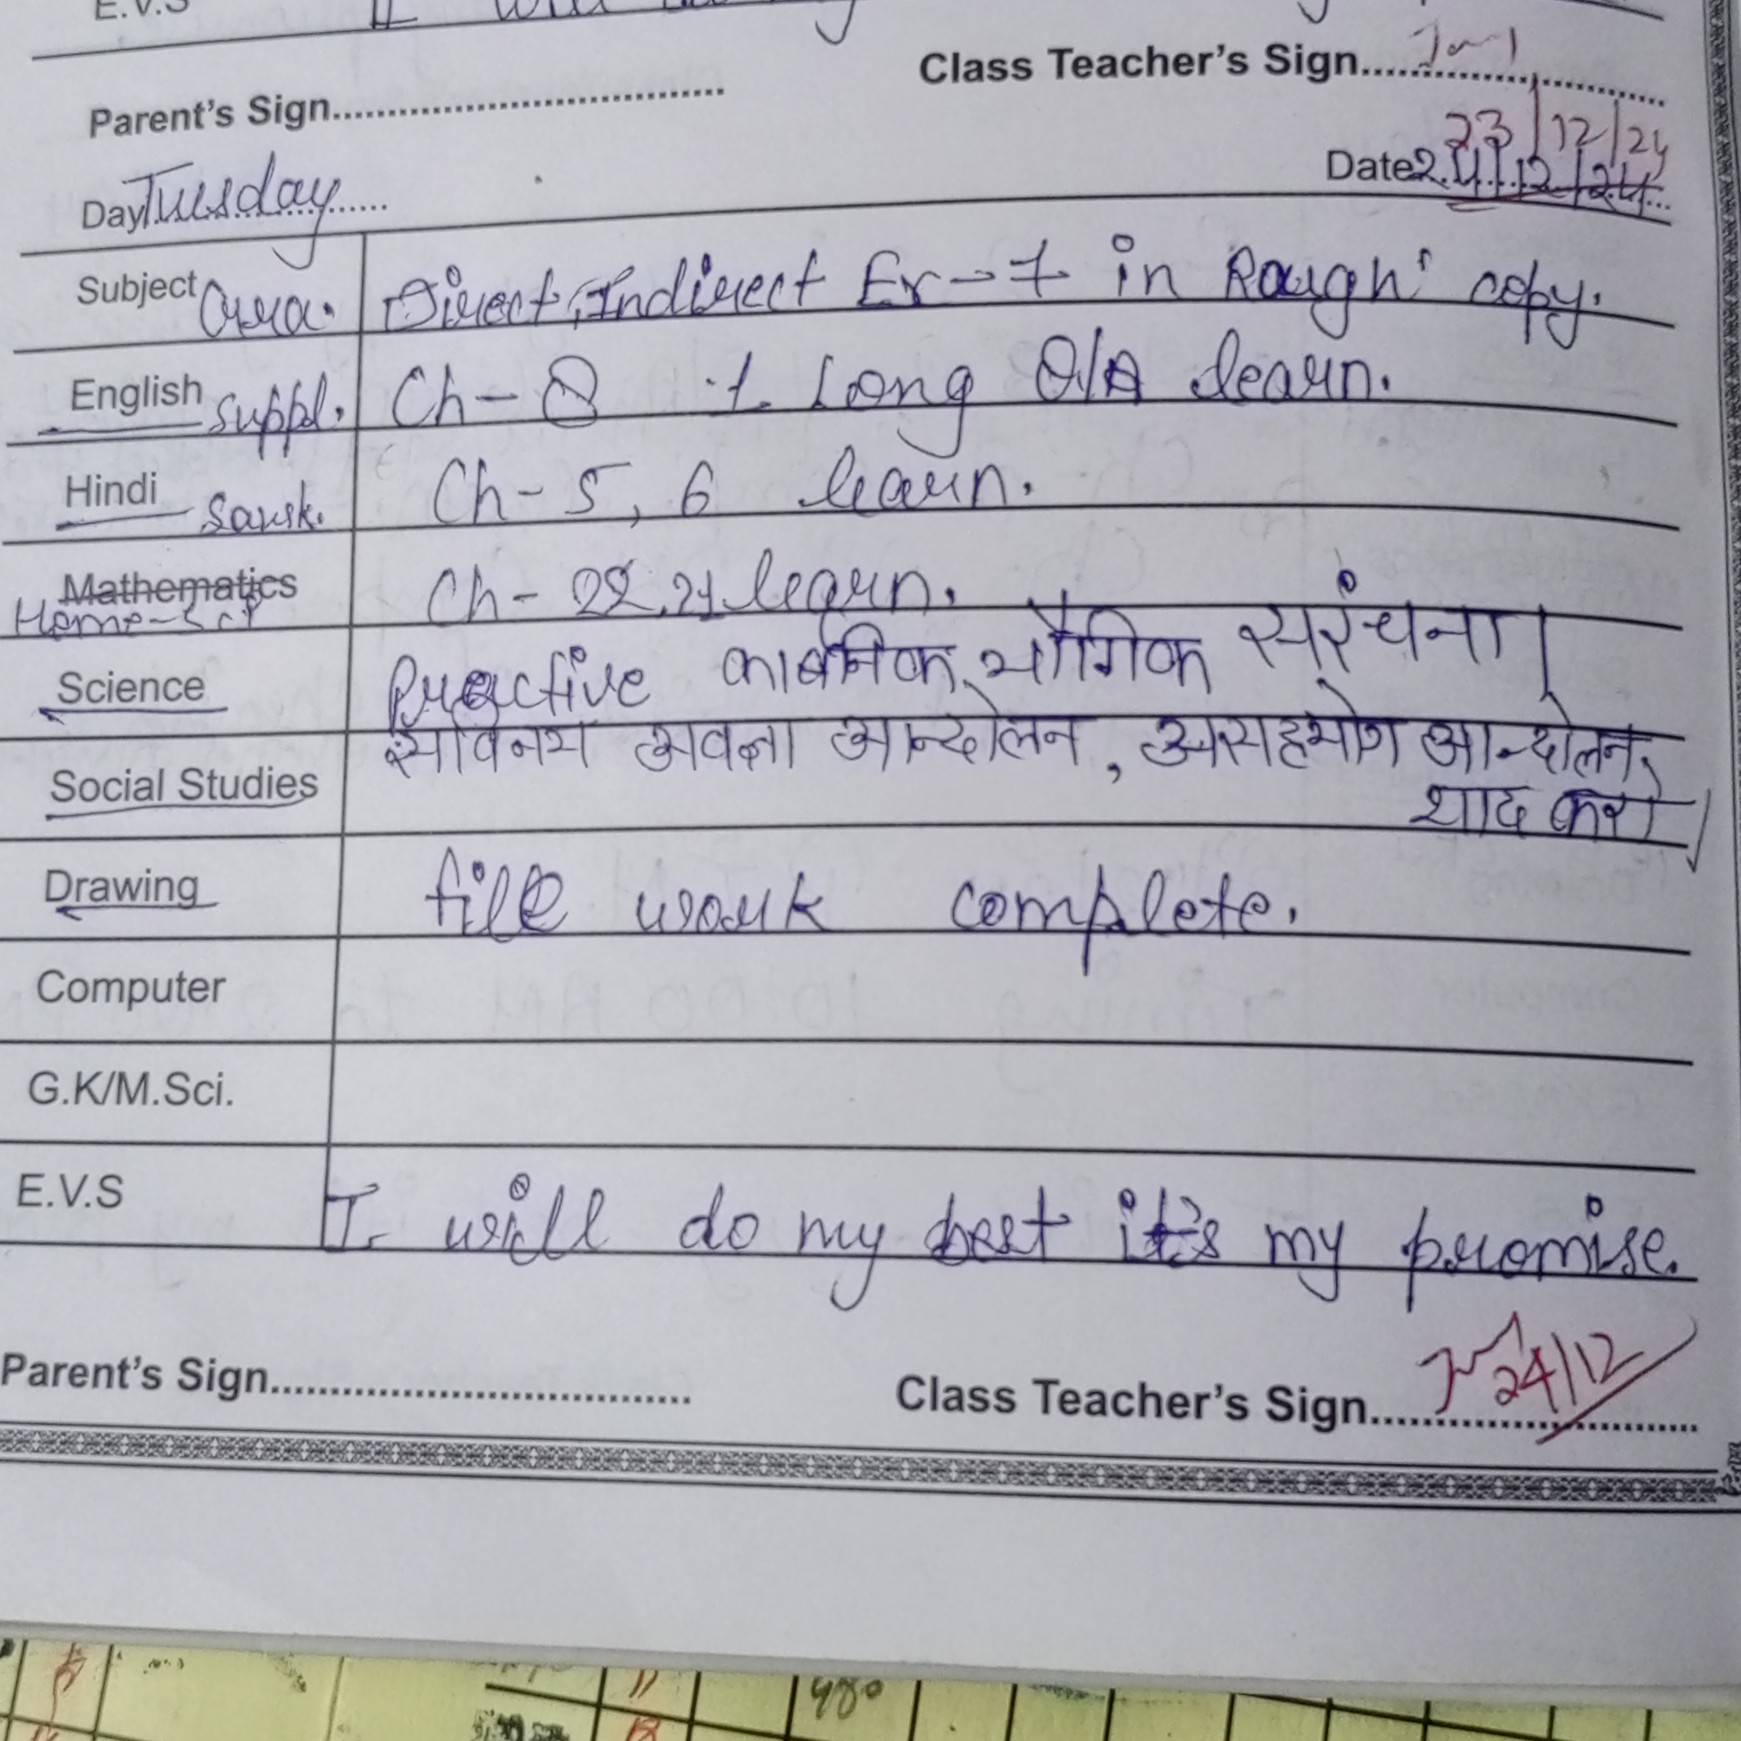 E.V.S I will
Class Teacher's Sign
Parent's Sign
23/12/24
Day Tuesday Date 24/12/24
Subject Gra. Direct, Indirect Ex-7 in Rough copy.
English Suppl. Ch-8 1 Long Q/A learn.
Hindi Sansk. Ch-5, 6 learn.
Mathematics Home-Sci Ch-22, 21 learn.
Science Practive कार्बनिक यौगिक संरचना।
Social Studies सविनय अवज्ञा आन्दोलन, असहयोग आन्दोलन,
याद करो।
Drawing file work complete.
Computer
G.K/M.Sci.
E.V.S I will do my best it's my promise.
Parent's Sign Class Teacher's Sign 24/12
980